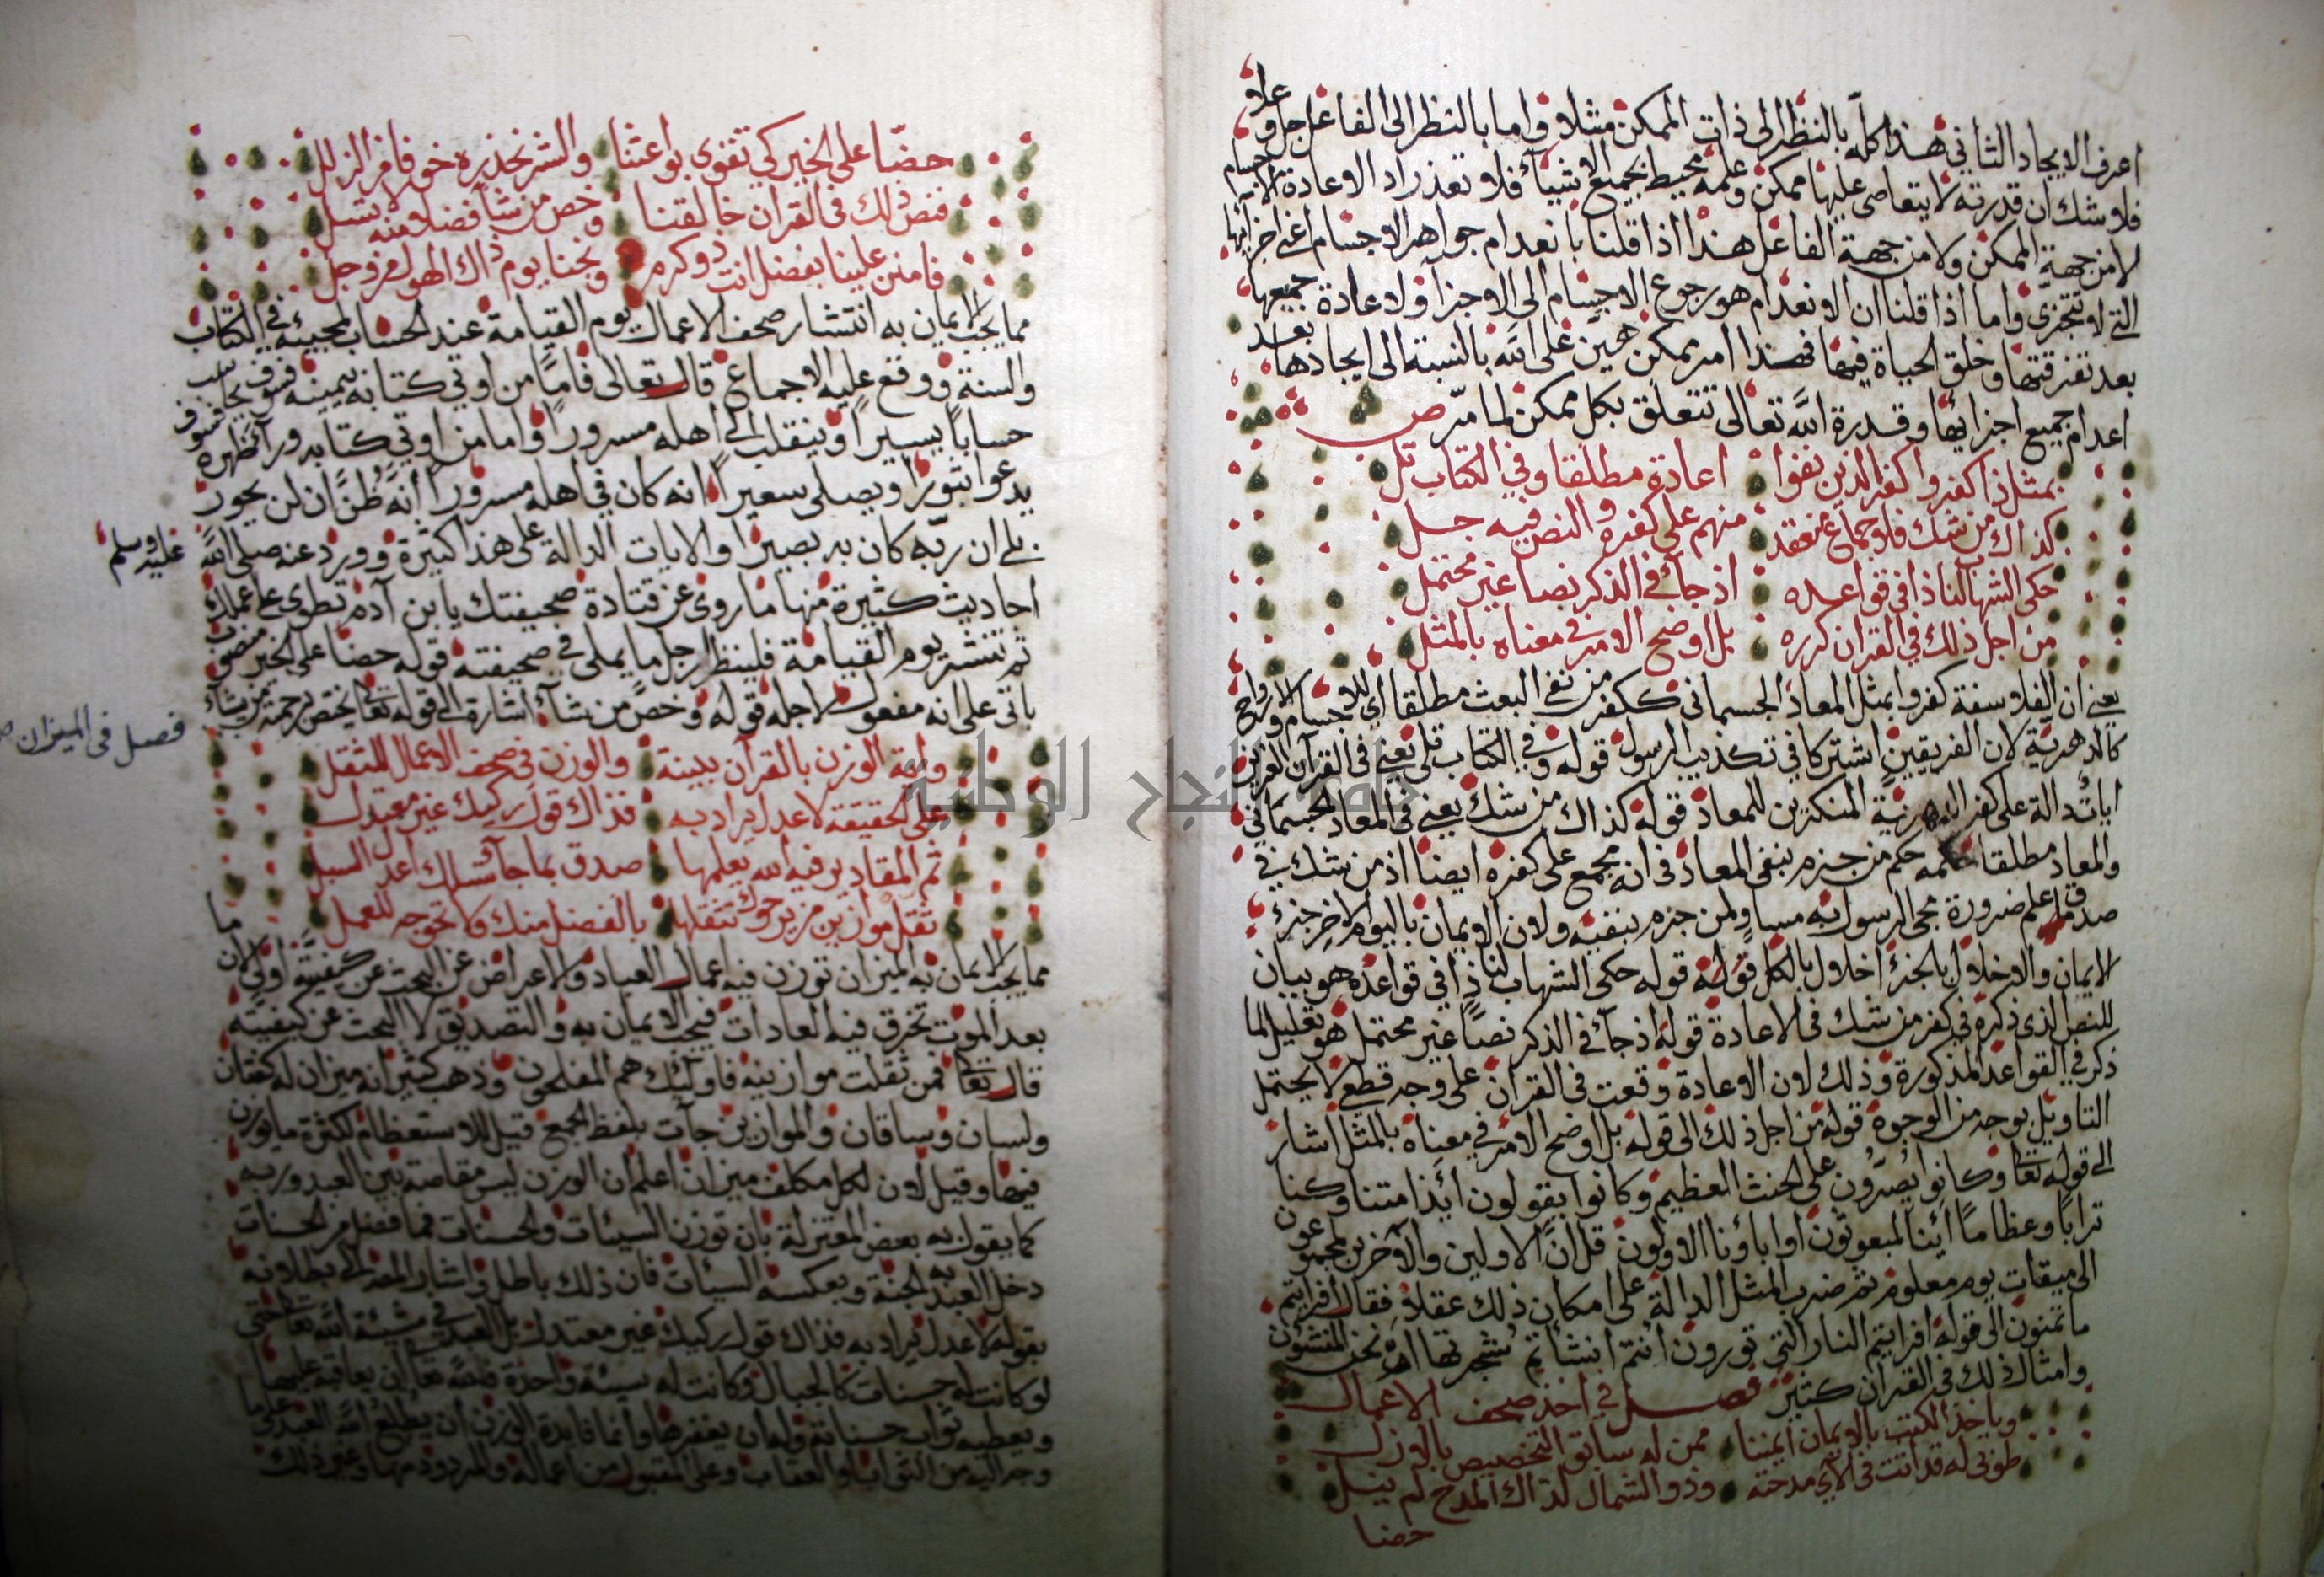 اعرف الايجاد الثاني هذا كله بالنظر الى ذات الممكن مثلا واما بالنظر الى الفاعل جل وعلا
فلا شك ان قدرته لا يتعاصى عليها ممكن وعلمه محيط بجميع الاشياء فلا تعذر اذ الاعادة
لا من جهة الممكن ولا من جهة الفاعل هذا اذا قلنا بانعدام جواهر الاجسام اعني اجزائها
التي لا تتجزى واما اذا قلنا ان الانعدام هو رجوع الاجسام الى الاجزاء ولاعادة جميعها
بعد تفرقتها وخلق الحياة فيها فهذا امر ممكن هين على الله بالنسبة الى ايجادها بعد
اعدام جميع اجزائها وقدرة الله تعالى تتعلق بكل ممكن لما مر ص
بمثل ذا كفروا كفر الذين نفوا اعادة مطلقا وفي الكتاب تلي
كذاك من شك فلاجماع منعقد منهم على كفره والنص فيه جلي
حكى الشهاب لنا ذا في قواعده اذ جاء في الذكر نصا غير محتمل
من اجل ذلك في القران كرره بل اوضح الامر في معناه بالمثل
يعني ان الفلاسفة كفروا بمثل المعاد الجسماني ككفر من نفى البعث مطلقا اي للاجسام والارواح
كالدهرية لان الفريقين اشتركا في تكذيب الرسول قوله وفي الكتاب تلي يعني في القرآن العزيز
ايات دالة على كفر الدهرية المنكرين للمعاد قوله كذاك من شك يعني في المعاد الجسماني
والمعاد مطلقا حكمه حكم من جزم بنفي المعاد في انه مجمع على كفره ايضا اذ من شك في
صدق ما علم ضرورة مجئ الرسول به مساو لمن جزم بنفيه ولان الايمان باليوم الاخر جزء
الايمان والاخلال بالجزء اخلال بالكل قوله حكى الشهاب لنا ذا في قواعده هو بيان
للنص الذي ذكره في كفر من شك في الاعادة قوله اذ جاء في الذكر نصا غير محتمل هو تعليل لما
ذكر في القواعد المذكورة وذلك لان الاعادة وقعت في القران على وجه قطعي لا يحتمل
التاويل بوجه من الوجوه قوله من اجل ذلك الى قوله بل اوضح الامر في معناه بالمثل اشار
الى قوله تعالى وكانوا يصرون على الحنث العظيم وكانوا يقولون ائذا متنا وكنا
ترابا وعظاما ائنا لمبعوثون او اباؤنا الاولون قل ان الاولين والآخرين لمجموعون
الى ميقات يوم معلوم ثم ضرب المثل الدالة على امكان ذلك عقلا فقال افرايتم
ما تمنون الى قوله افرايتم النار التي تورون أنتم انشأتم شجرتها ام نحن المنشؤن
وامثال ذلك في القران كثير فصل في اخذ صحف الاعمال
وياخذ الكتب بالايمان ايمننا ممن له سابق التخصيص بالازل
طوبى له قد اتت في الآي مدحته وذو الشمال لذاك المدح لم ينل
حضا
حضّا على الخير كي تقوى بواعثنا والشر نحذره خوفا من الزلل
فنص ذلك في القران خالقنا وخص من شاء فضلا منه
فامنن علينا بفضل انت ذو كرم ونجنا يوم ذاك الهول من وجل
مما يجب الايمان به انتشار صحف الاعمال يوم القيامة عند الحساب لمجيئه في الكتاب
والسنة ووقع عليه الاجماع قال تعالى فاما من اوتي كتابه بيمينه فسوف يحاسب
حسابا يسيرا وينقلب الى اهله مسرورا واما من اوتي كتابه ورآ ظهره فسوف
يدعوا ثبورا ويصلى سعيرا انه كان في اهله مسرورا انه ظن ان لن يحور
بلى ان ربه كان به بصيرا والايات الدالة على هذا كثيرة وورد عنه صلى الله عليه وسلم
احاديث كثيرة منها ما روي عن قتادة صحيفتك يا بن آدم تطوى على عملك
ثم تنشر يوم القيامة فلينظر الرجل ما يملي في صحيفته قوله حضا على الخير منصوب
باتى على انه مفعول لاجله قوله وخص من شاء اشارة الى قوله تعالى يختص برحمته من يشاء
فصل في الميزان ص
واية الوزن بالقرآن بينة والوزن في صحف الاعمال للثقل
على حقيقته لا عدل يراد به فذاك قول ركيك غير معتدل
ثم المقادير فيه الله يعلمها صدق بما جاء تسلك اعدل السبل
ثقل موازين من يرجوك تثقلها بالفضل منك ولا تحوجه للعمل
مما يجب الايمان به الميزان توزن فيه اعمال العباد والاعراض عن البحث عن كيفيته اولى لان ما
بعد الموت تخرق فيه العادات فيجب الايمان به والتصديق لا البحث عن كيفيته
قال تعالى فمن ثقلت موازينه فاولئك هم المفلحون وذهب كثير انه ميزان له كفتان
ولسان وساقان والموازين جآت بلفظ الجمع قيل للاستعظام لكثرة ما يوزن
فيها وقيل لان لكل مكلف ميزان اعلم ان الوزن ليس مقاصة بين العبد وربه
كما يقول به بعض المعتزلة بان توزن السيئات والحسنات فما فضل من الحسنات
دخل العبد به الجنة وبعكسه السيئات فان ذلك باطل واشار المص الى بطلانه
بقوله لا عدل يراد به فذاك قول ركيك غير معتدل بل العبد في مشيئة الله تعالى حتى
لو كانت له حسنات كالجبال وكانت له سيئة واحدة فلله تعالى ان يعاقبه عليها
ويعطيه ثواب حسناته وله ان يغفرها وانما فايدة الوزن ان يطلع الله العبد على ما
وجه اليه من الثواب والعقاب وعلى المقبول من اعماله والمردود منها وغير ذلك
جامعة النجاح الوطنية